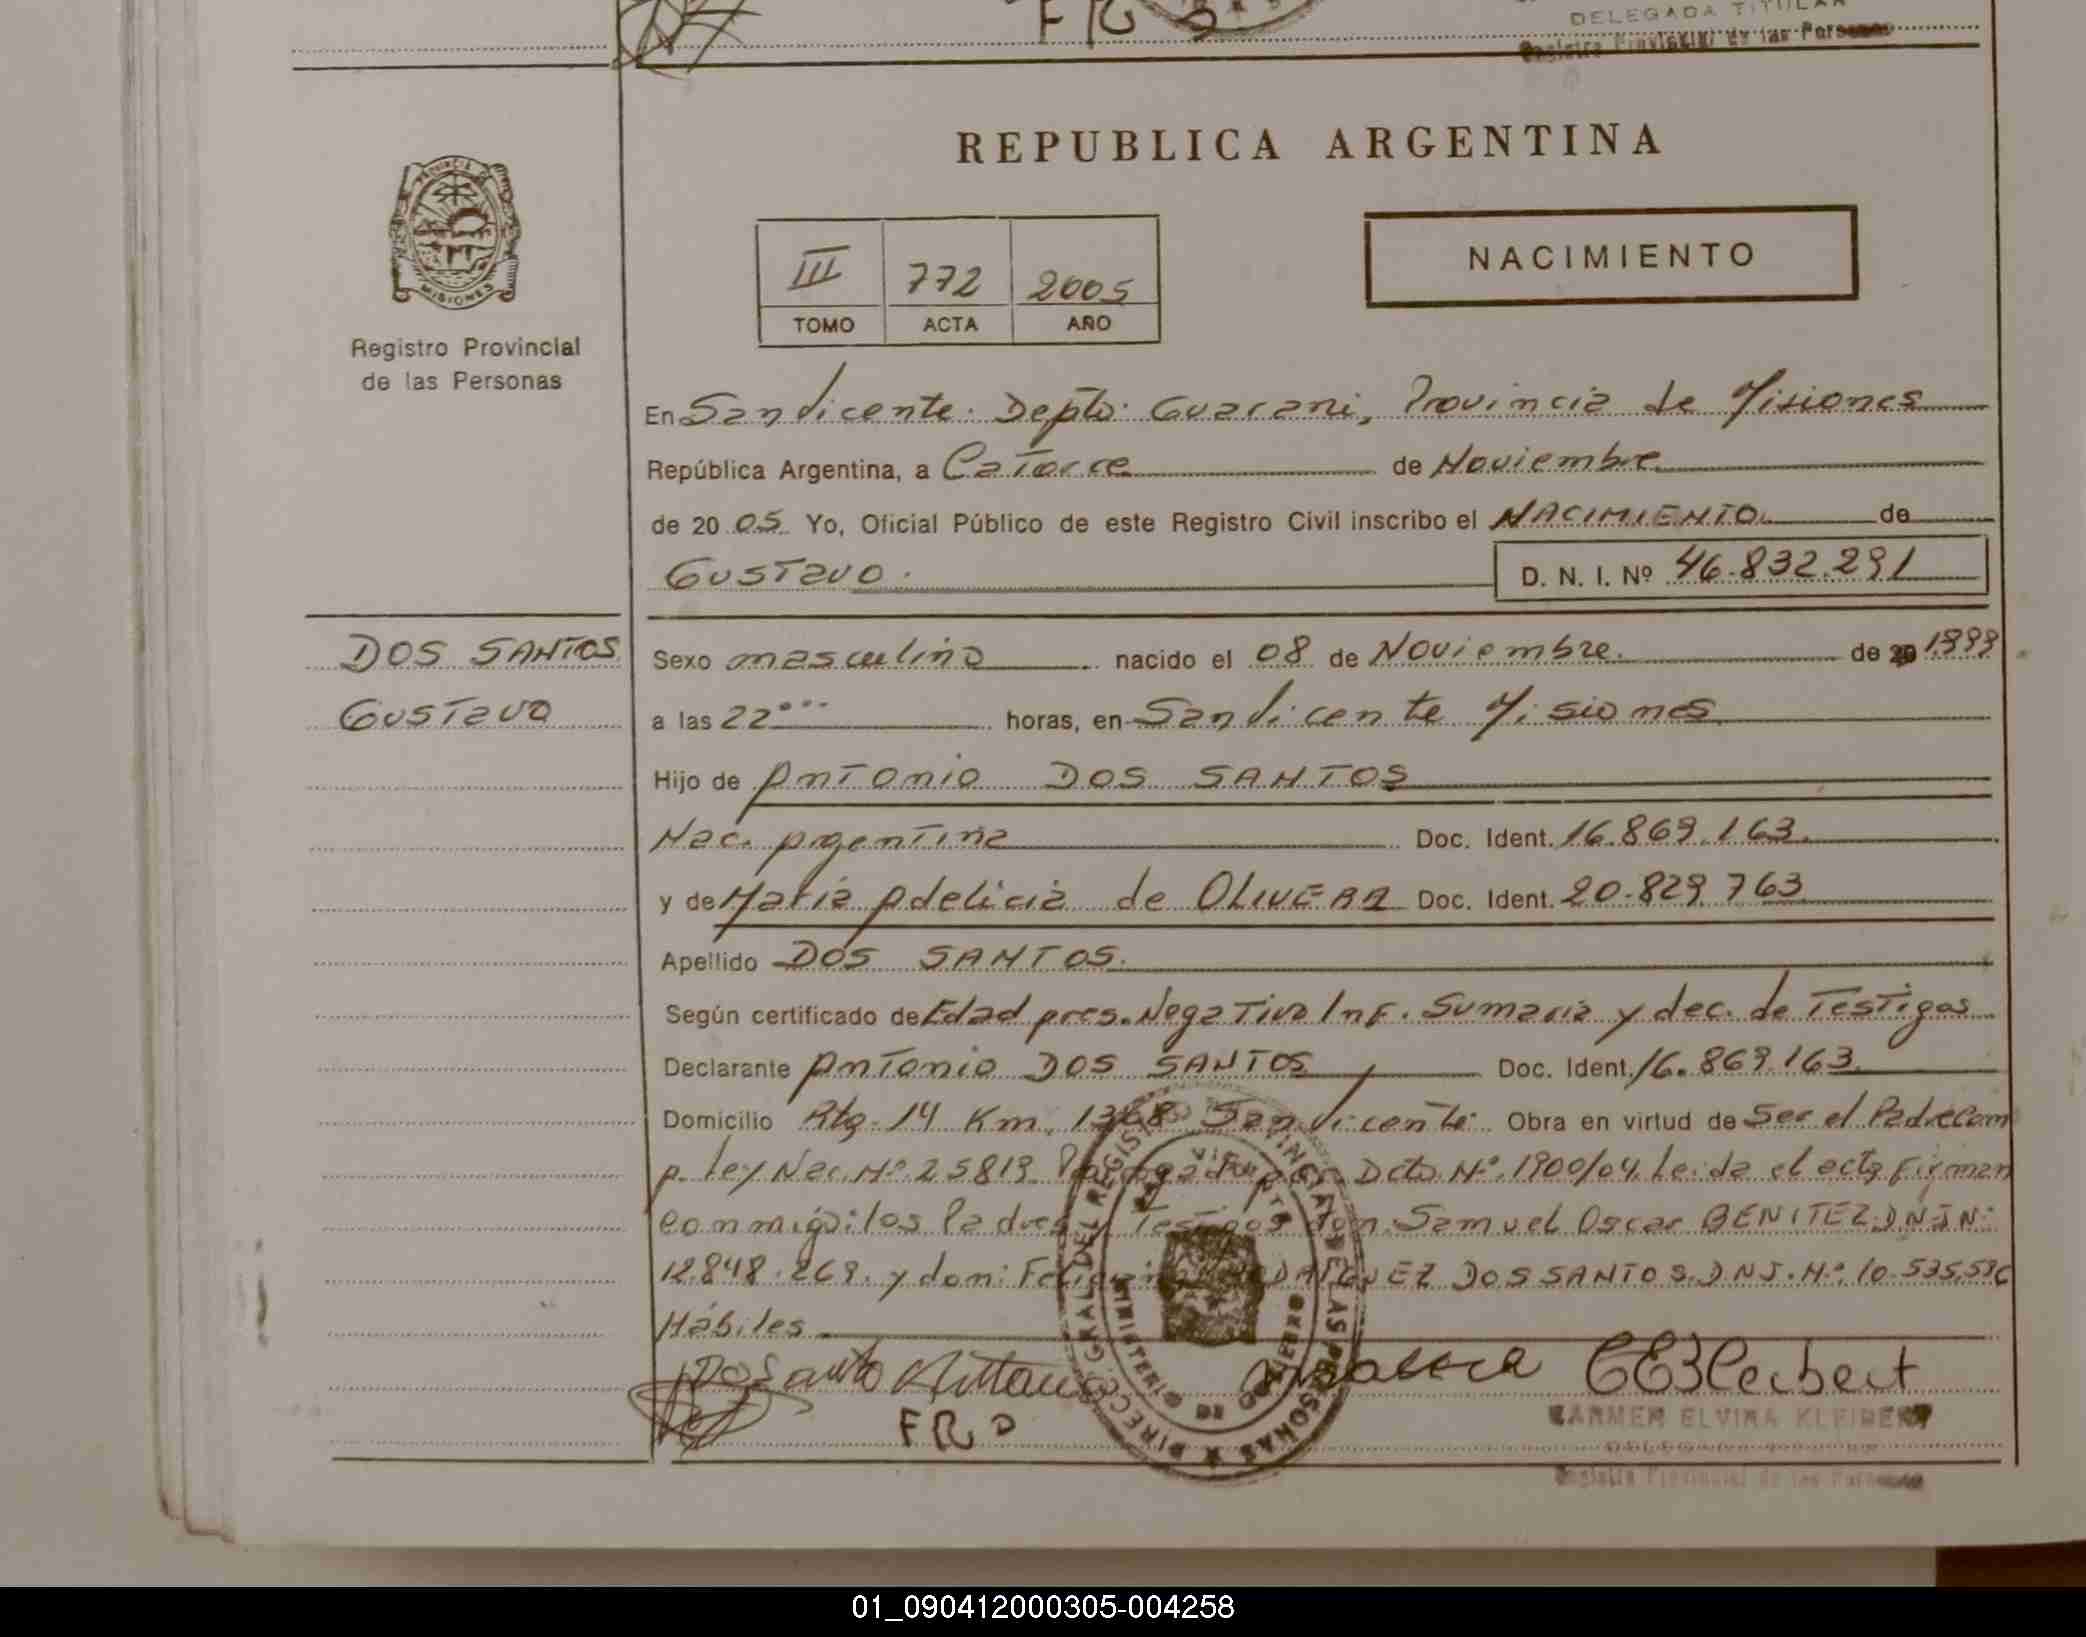 DELEGADA TITULAR
Registro Provincial de las Personas
REPUBLICA ARGENTINA
PROVINCIA DE
MISIONES
III 772 2005
TOMO ACTA AÑO
NACIMIENTO
Registro Provincial
de las Personas
En San Vicente. Depto. Guarani, Provincia de Misiones
República Argentina, a Catorce de Noviembre
de 20 05 Yo, Oficial Público de este Registro Civil inscribo el NACIMIENTO de
Gustavo. D. N. I. Nº 46.832.291
DOS SANTOS
Gustavo
Sexo masculino nacido el 08 de Noviembre de 20 1999
a las 22 horas, en San Vicente Misiones
Hijo de Antonio DOS SANTOS
Nac. Argentina Doc. Ident. 16.869.163.
y de Maria Adelicia de OLIVERA Doc. Ident. 20.829.763
Apellido DOS SANTOS.
Según certificado de Edad pres. Negativo Inf. Sumaria y dec. de Testigos
Declarante Antonio DOS SANTOS Doc. Ident. 16.869.163
Domicilio Rta. 14 Km. 1368 San Vicente. Obra en virtud de Ser el Padre Com
p. Ley Nac. Nº 25819 Dcto. Nº 1900/04. Leida el acta firman
conmigo los Padres y Testigos don: Samuel Oscar BENITEZ D N I N:
12.848.269. y don: DOS SANTOS. D N I. Nº.
Hábiles
Dos Santo
FRD
CARMEN ELVIRA KLEIBERT
Registro Provincial de las Personas
DIRECC. GRAL. DEL REGISTRO PROVINCIAL DE LAS PERSONAS
MINISTERIO DE GOBIERNO
01_090412000305-004258